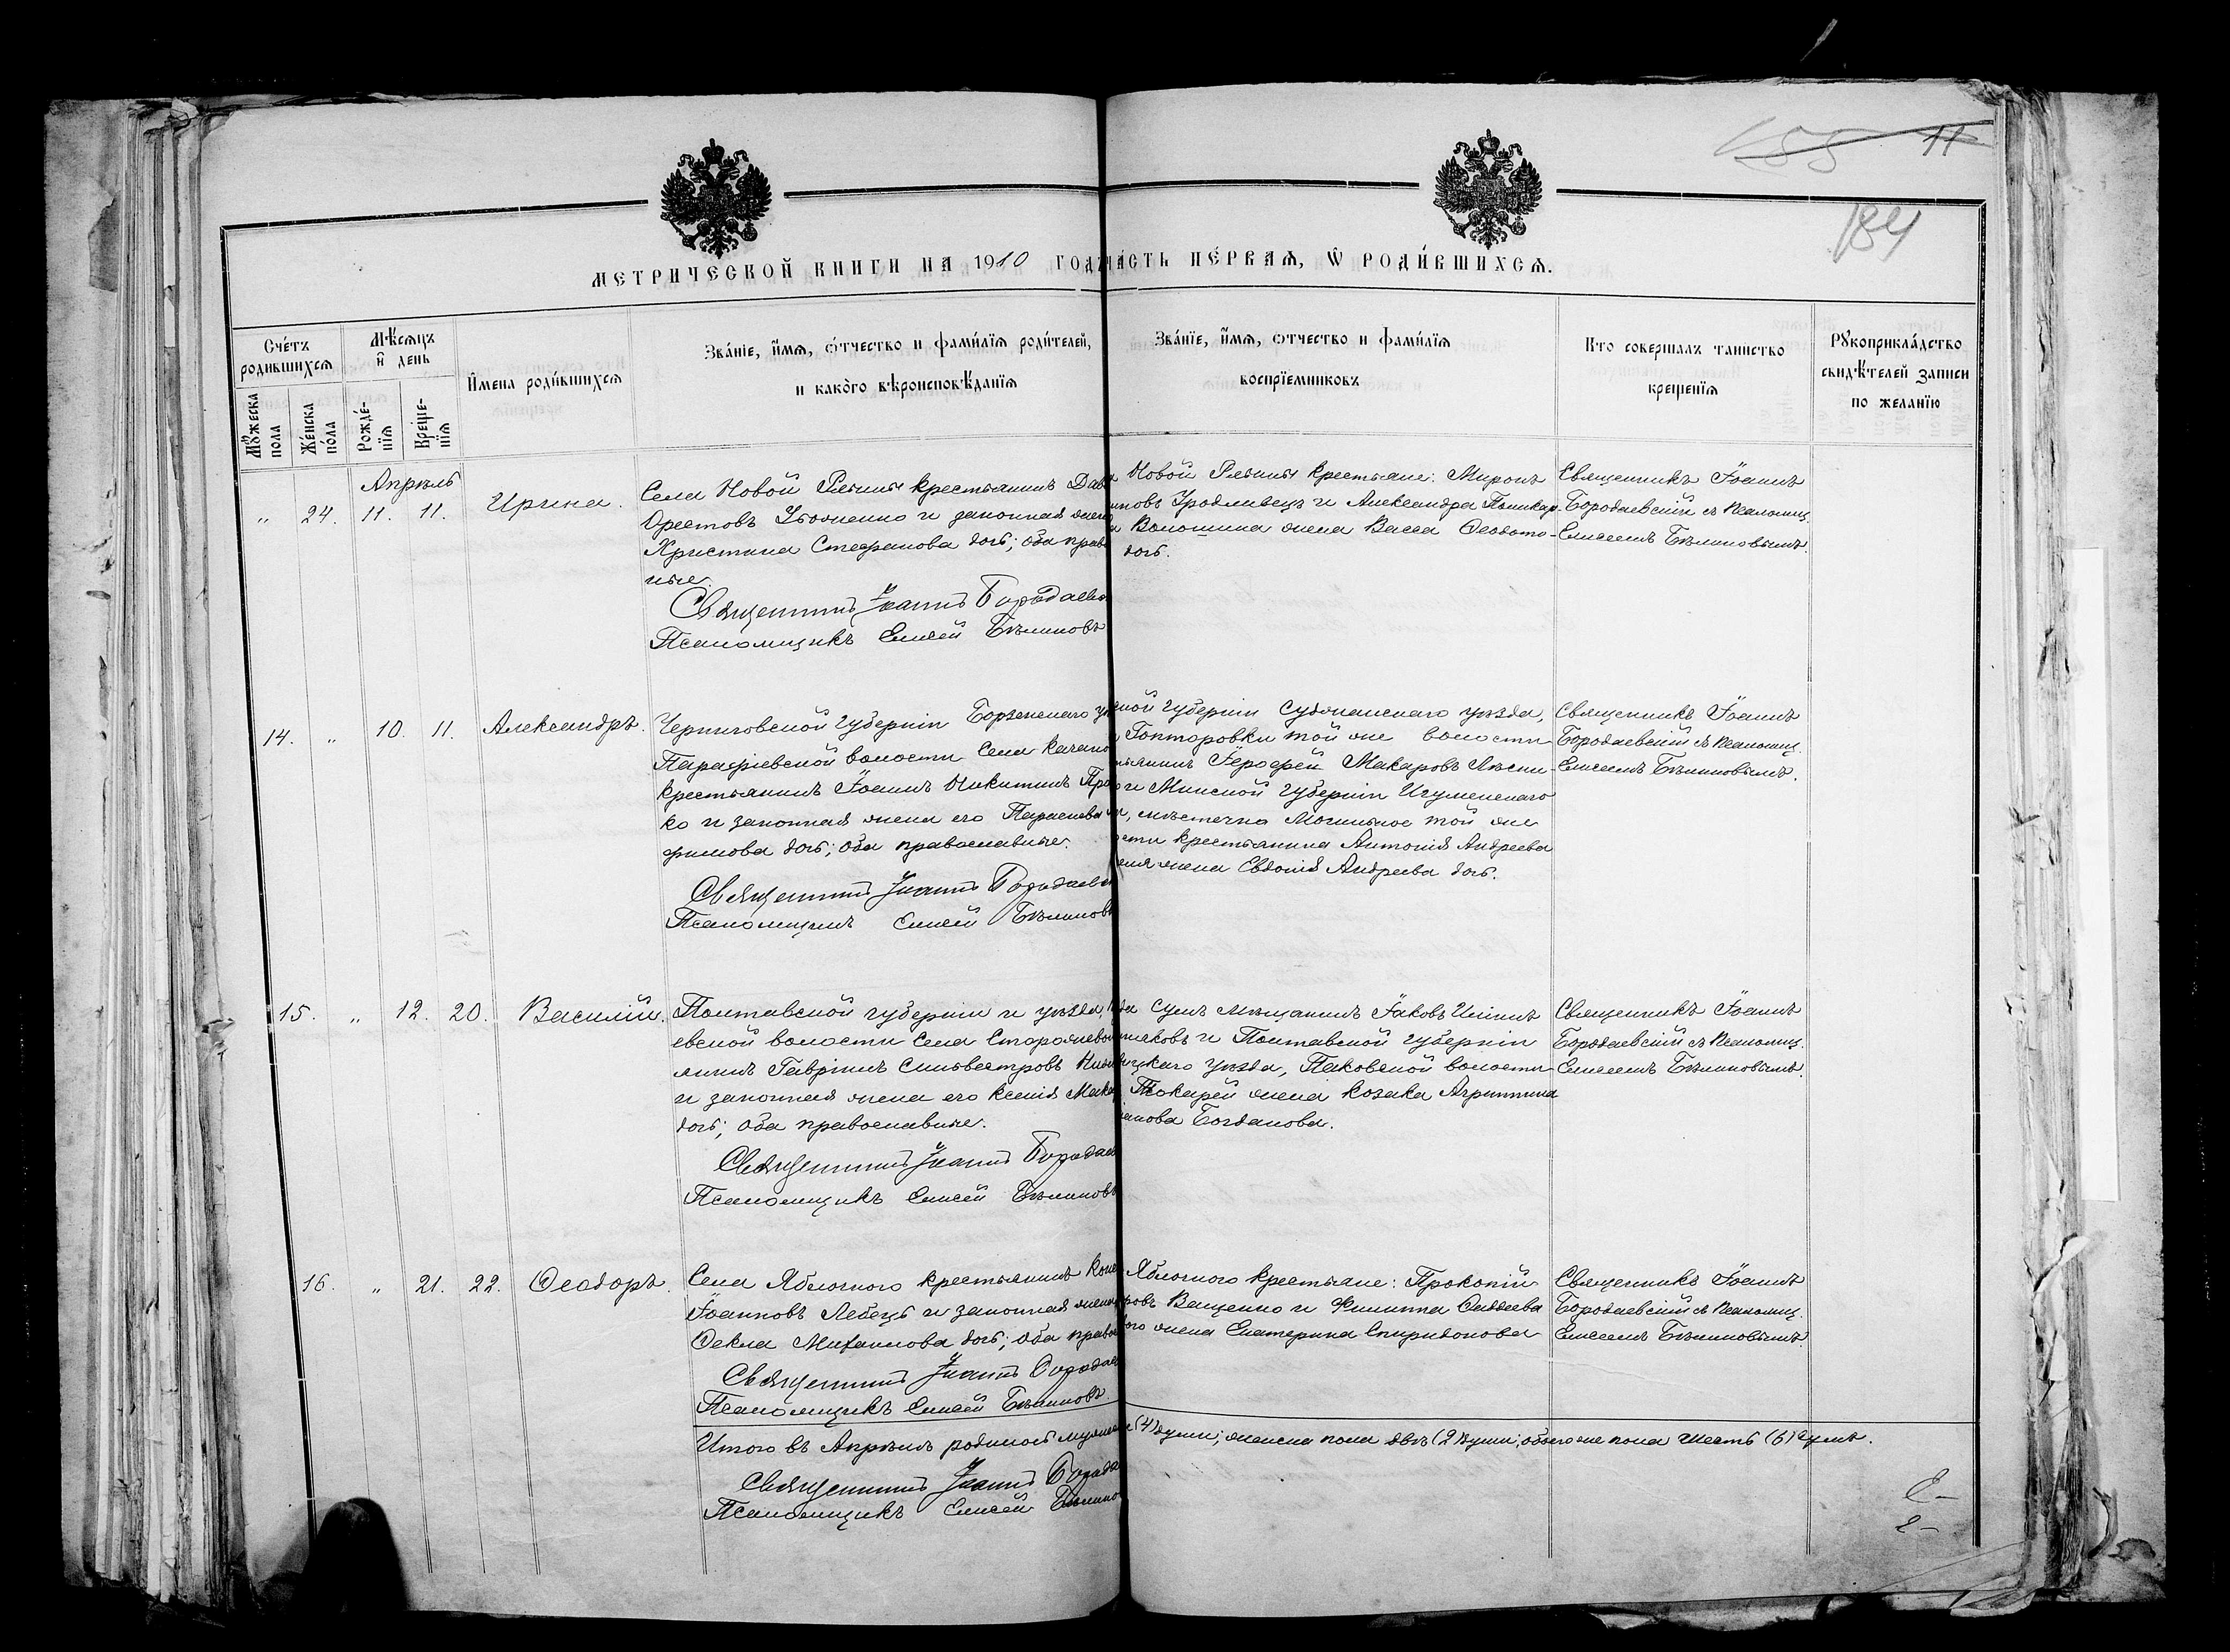 11
184
МЕТРИЧЕСКОЙ КНИГИ НА 1910 ГОДЪ ЧАСТЬ ПЕ́РВАѦ, Ѿ РОДИ́ВШИХСѦ.
Счéтъ родившихсѧ
Мꙋ́жеска пола
Же́нска по́ла
Мѣ́сѧцъ и҆ день
Рожде́-нїѧ
Креще-нїѧ
И҆мена роди́вшихсѧ
Зва́нїе, и҆́мѧ, ѻ҆́тчество и фами́лїѧ роди́телей,
и како́го вѣроисповѣ́данїѧ
Зва́нїе, и҆́мѧ, ѻтчество и фами́лїѧ
воспрїемниковъ
Кто совершалъ таинство
крещенїѧ
Рꙋкоприкла́дство
свидѣ́телей записи
по желанїю
Апрѣль
„ 24. 11. 11. Ирина.
Села Новой Рябины крестьянинъ Дав
Орестовъ и законная жена
Христина Стефанова дочь; оба право
ные.
Священникъ Іоаннъ Бородаевс
Псаломщикъ Елисей Бѣлиновъ
Новой Рябины крестьяне: Миронъ
Уродливецъ и Александра Поликар-
Волошина жена Васса Ѳеодото-
дочь.
Священникъ Іоаннъ
Бородаевскій съ псаломщ.
Елисеемъ Бѣлиновымъ.
14. „ 10. 11. Александръ.
Черниговской губерніи Борзенскаго у
Парафіевской волости села Качано
крестьянинъ Іоаннъ Никитинъ Про
ко и законная жена его Параскева
фимова дочь; оба православные.
Священникъ Іоаннъ Бородаевс
Псаломщикъ Елисей Бѣлиновъ
ской губерніи Суджанскаго уѣзда,
Гонторовки той же волости
Іерофей Макаровъ
и Минской губерніи Игуменскаго
мѣстечка Могильное той же
сти крестьянина Антонія Андреева
жена Евдокія Андреева дочь.
Священникъ Іоаннъ
Бородаевскій съ псаломщ.
Елисеемъ Бѣлиновымъ.
15. „ 12. 20. Василій.
Полтавской губерніи и уѣзда,
евской волости села Старожево
янинъ Гавріилъ Сильвестровъ
и законная жена его Ксенія Мака
дочь; оба православные.
Священникъ Іоаннъ Бородаев
Псаломщикъ Елисей Бѣлиновъ
да Сумъ мѣщанинъ Іаковъ
и Полтавской губерніи
уѣзда, волости
Токарей жена козака Агриппина
Богданова.
Священникъ Іоаннъ
Бородаевскій съ псаломщ.
Елисеемъ Бѣлиновымъ.
16. „ 21. 22. Ѳеодоръ.
Села Яблочного крестьянинъ Кон
Іоанновъ Лебедь и законная жена
Ѳекла Михаилова дочь; оба право
Священникъ Іоаннъ Бородаев
Псаломщикъ Елисей Бѣлиновъ.
Яблочного крестьяне: Прокопій
Ващенко и Филиппа Ѳаддеева
жена Екатерина Спиридонова
Священникъ Іоаннъ
Бородаевскій съ псаломщ.
Елисеемъ Бѣлиновымъ.
Итого въ Апрѣлѣ родилось мужеска (4) души; женска пола двѣ (2) души; обоего же пола шесть (6) душъ.
Священникъ Іоаннъ Борода
Псаломщикъ Елисей Бѣлино